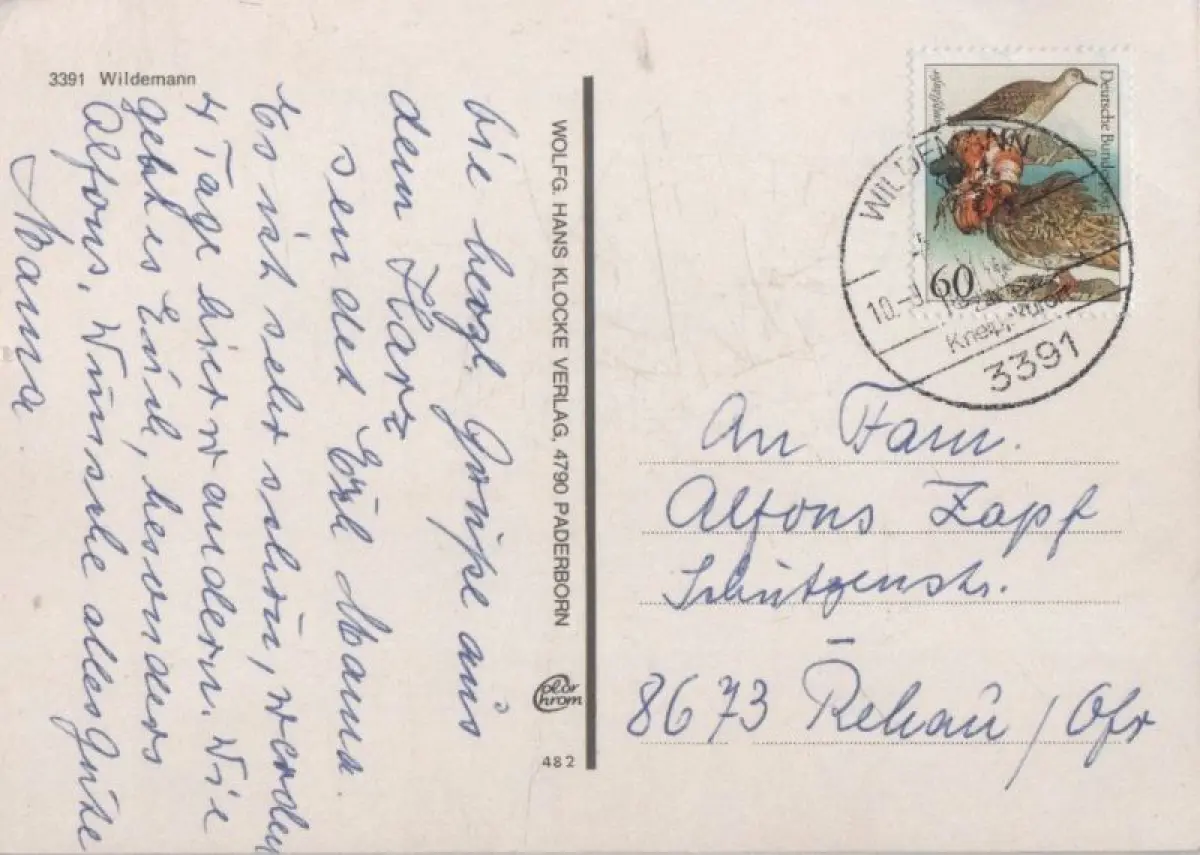 3391 Wildemann
Die herzl. Grüße aus
dem Harz
sendet Euch Mama.
Es ist sehr schön, werden
4 Tage hier wandern. Wie
geht es Euch, besonders
Alfons. Wünsche alles Gute
Mama
WOLFG. HANS KLOCKE VERLAG, 4790 PADERBORN
Color
Chrom
482
Deutsche Bundespost
60
WILDEMANN
10.
Kneippkurort
3391
An Fam.
Alfons Zapf
Schützenstr.
8673 Rehau/Ofr